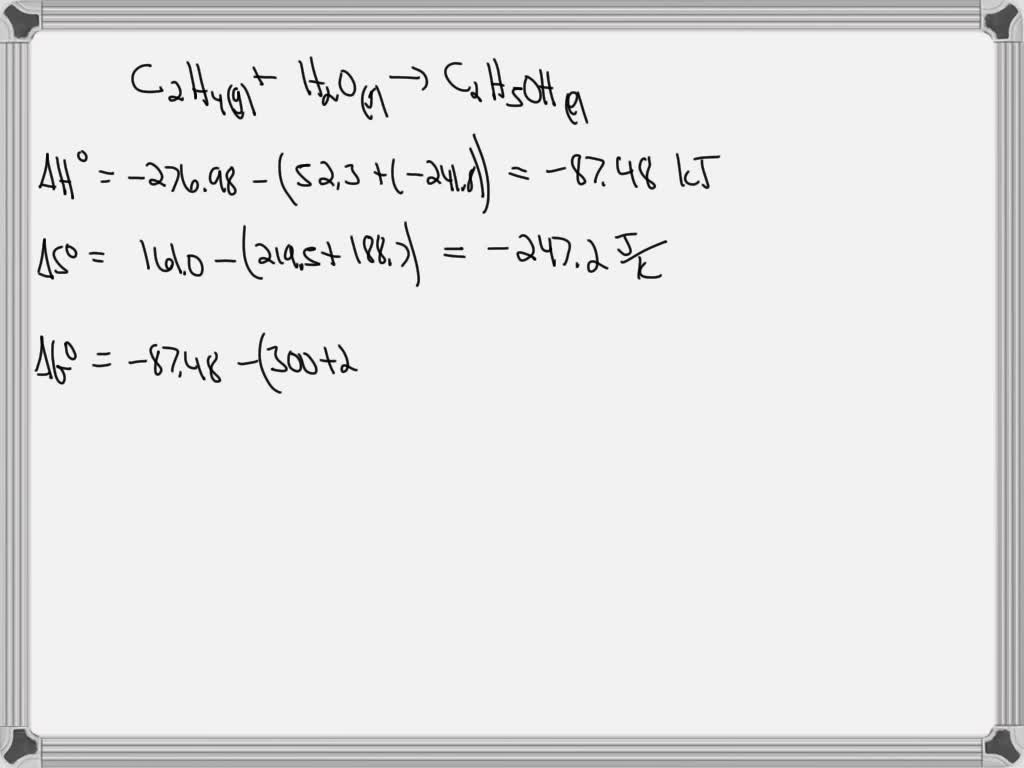 C₂H₄(g) + H₂O(g) → C₂H₅OH(l)
ΔH° = -276.98 - (52.3 + (-241.8)) = -87.48 kJ
ΔS° = 161.0 - (219.5 + 188.7) = -247.2 J/K
ΔG° = -87.48 - (300+2